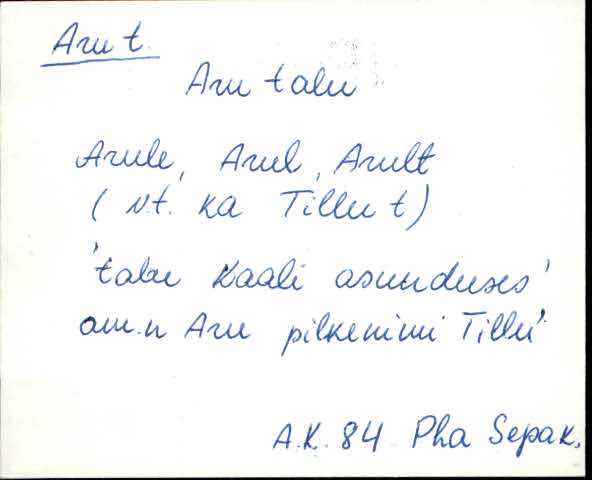 Aru t.
Aru talu
Arule, Arul, Arult
( vt. ka Tillu t)
'talu Kaali asunduses'
om.n Aru pilkenimi Tillu'
A.K. 84 Pha Sepak.